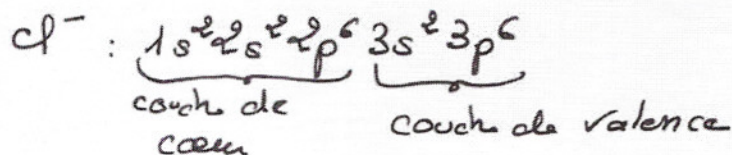 Cl⁻ : 1s² 2s² 2p⁶ 3s² 3p⁶
couche de cœur
couche de valence